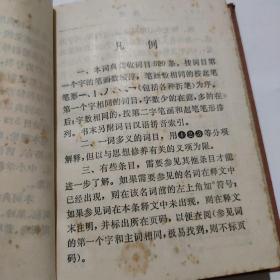 凡例
一、本词典共收词目529条,按词目
第一个字的笔画数顺序,笔画数相同的按起笔
笔形一、丨、丿、丶、乛(包括各种折笔)为序。
第一个字相同的词目,字数少的在前,多的在
后;字数相同的,按第二字笔画和起笔笔形排
列。书末另附词目汉语拼音索引。
二、一词多义的词目,用❶❷❸等分项
解释,但以与思想修养有关的义项为限。
三、有些条目,需要参见其他条目才能
进一步了解。如果需要参见的名词在释文中
已经出现,则在该名词前的左上角加°符号;
如果参见词在本条释文中未出现,则在释文
末注明,并标出所在页码,以便查阅(参见词
的第一个字和主词相同,极易找到,则不标页
码)。